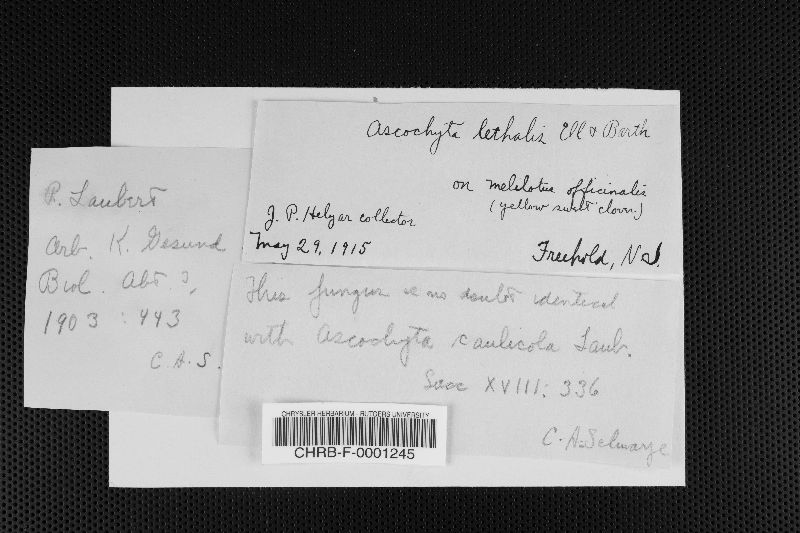 Ascochyta lethalis Ell & Barth
on Melilotus officinalis
(yellow sweet clover)
J. P. Helyar collector
May 29, 1915
Freehold, N.J.
P. Laubert
Arb. K. Gesund
Biol. Abt. 3,
1903 : 443
C. A. S.
This fungus is no doubt identical
with Ascochyta caulicola Laub.
Sacc XVIII: 336
C. A. Schwarze
CHRYSLER HERBARIUM - RUTGERS UNIVERSITY
CHRB-F-0001245